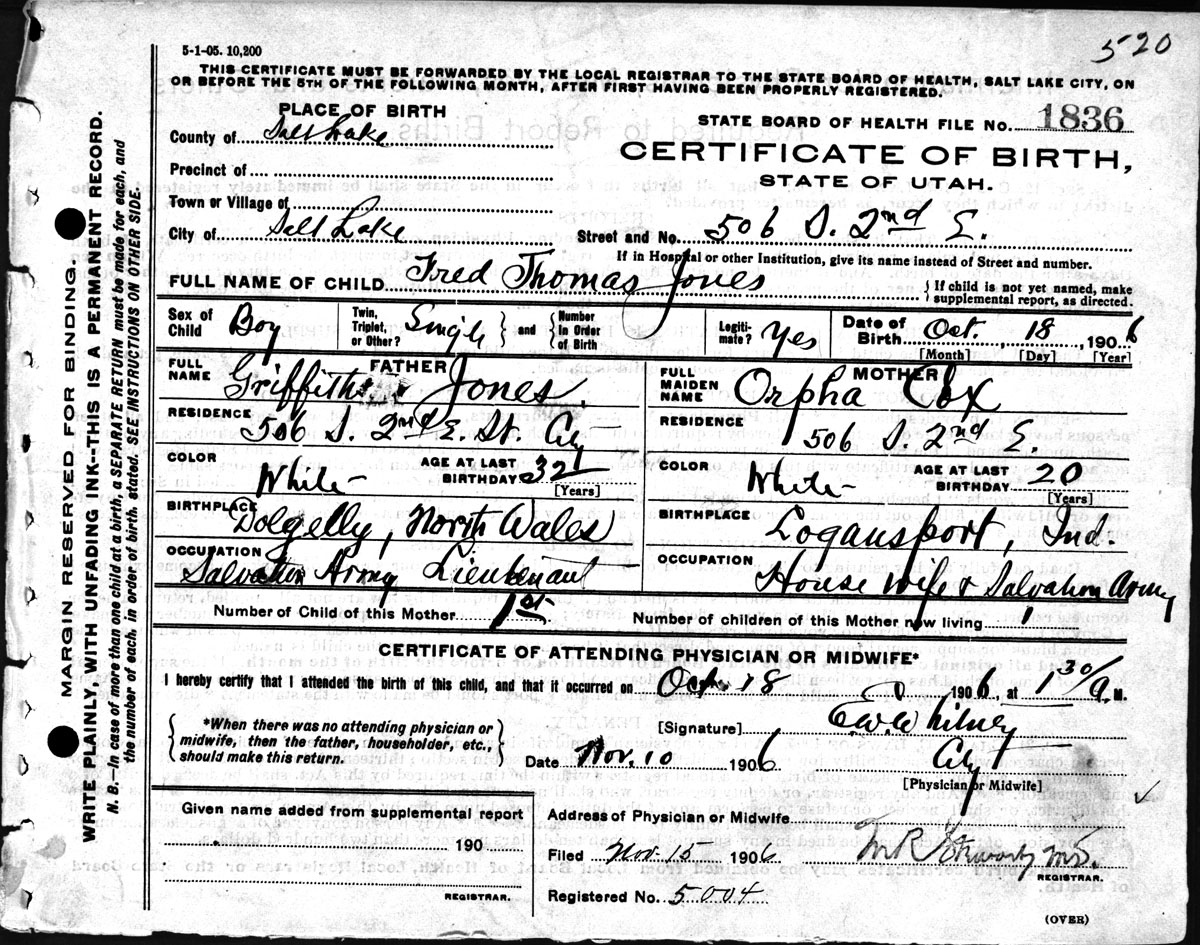 520
5-1-05. 10,200
THIS CERTIFICATE MUST BE FORWARDED BY THE LOCAL REGISTRAR TO THE STATE BOARD OF HEALTH, SALT LAKE CITY, ON
OR BEFORE THE 5TH OF THE FOLLOWING MONTH, AFTER FIRST HAVING BEEN PROPERLY REGISTERED.
MARGIN RESERVED FOR BINDING
WRITE PLAINLY, WITH UNFADING INK--THIS IS A PERMANENT RECORD.
N. B.—In case of more than one child at a birth, a SEPARATE RETURN must be made for each, and
the number of each, in order of birth, stated. SEE INSTRUCTIONS ON OTHER SIDE.
PLACE OF BIRTH
County of Salt Lake
Precinct of
Town or Village of
City of Salt Lake
STATE BOARD OF HEALTH FILE No. 1836
CERTIFICATE OF BIRTH,
STATE OF UTAH.
Street and No. 506 S. 2nd E.
If in Hospital or other Institution, give its name instead of Street and number.
FULL NAME OF CHILD Fred Thomas Jones
If child is not yet named, make
supplemental report, as directed.
Sex of Child Boy
Twin, Triplet, or Other? Single and Number In Order of Birth
Legiti- mate? Yes
Date of Birth Oct. 18, 1906
[Month] [Day] [Year]
FATHER
FULL NAME Griffith Jones.
RESIDENCE 506 S. 2nd E. St. City
COLOR White AGE AT LAST BIRTHDAY 32
[Years]
BIRTHPLACE Dolgelly, North Wales
OCCUPATION Salvation Army Lieutenant
MOTHER
FULL MAIDEN NAME Orpha Cox
RESIDENCE 506 S. 2nd E.
COLOR White AGE AT LAST BIRTHDAY 20
[Years]
BIRTHPLACE Logansport, Ind.
OCCUPATION House wife & Salvation Army
Number of Child of this Mother 1st
Number of children of this Mother now living 1
CERTIFICATE OF ATTENDING PHYSICIAN OR MIDWIFE*
I hereby certify that I attended the birth of this child, and that it occurred on Oct. 18 1906, at 1 30/ A. M.
*When there was no attending physician or
midwife, then the father, householder, etc.,
should make this return.
[Signature] E. W. Whitney
Date Nov. 10 1906 City
[Physician or Midwife]
Given name added from supplemental report
190
REGISTRAR.
Address of Physician or Midwife
Filed Nov. 15 1906 M.D.
REGISTRAR.
Registered No. 5004
(OVER)